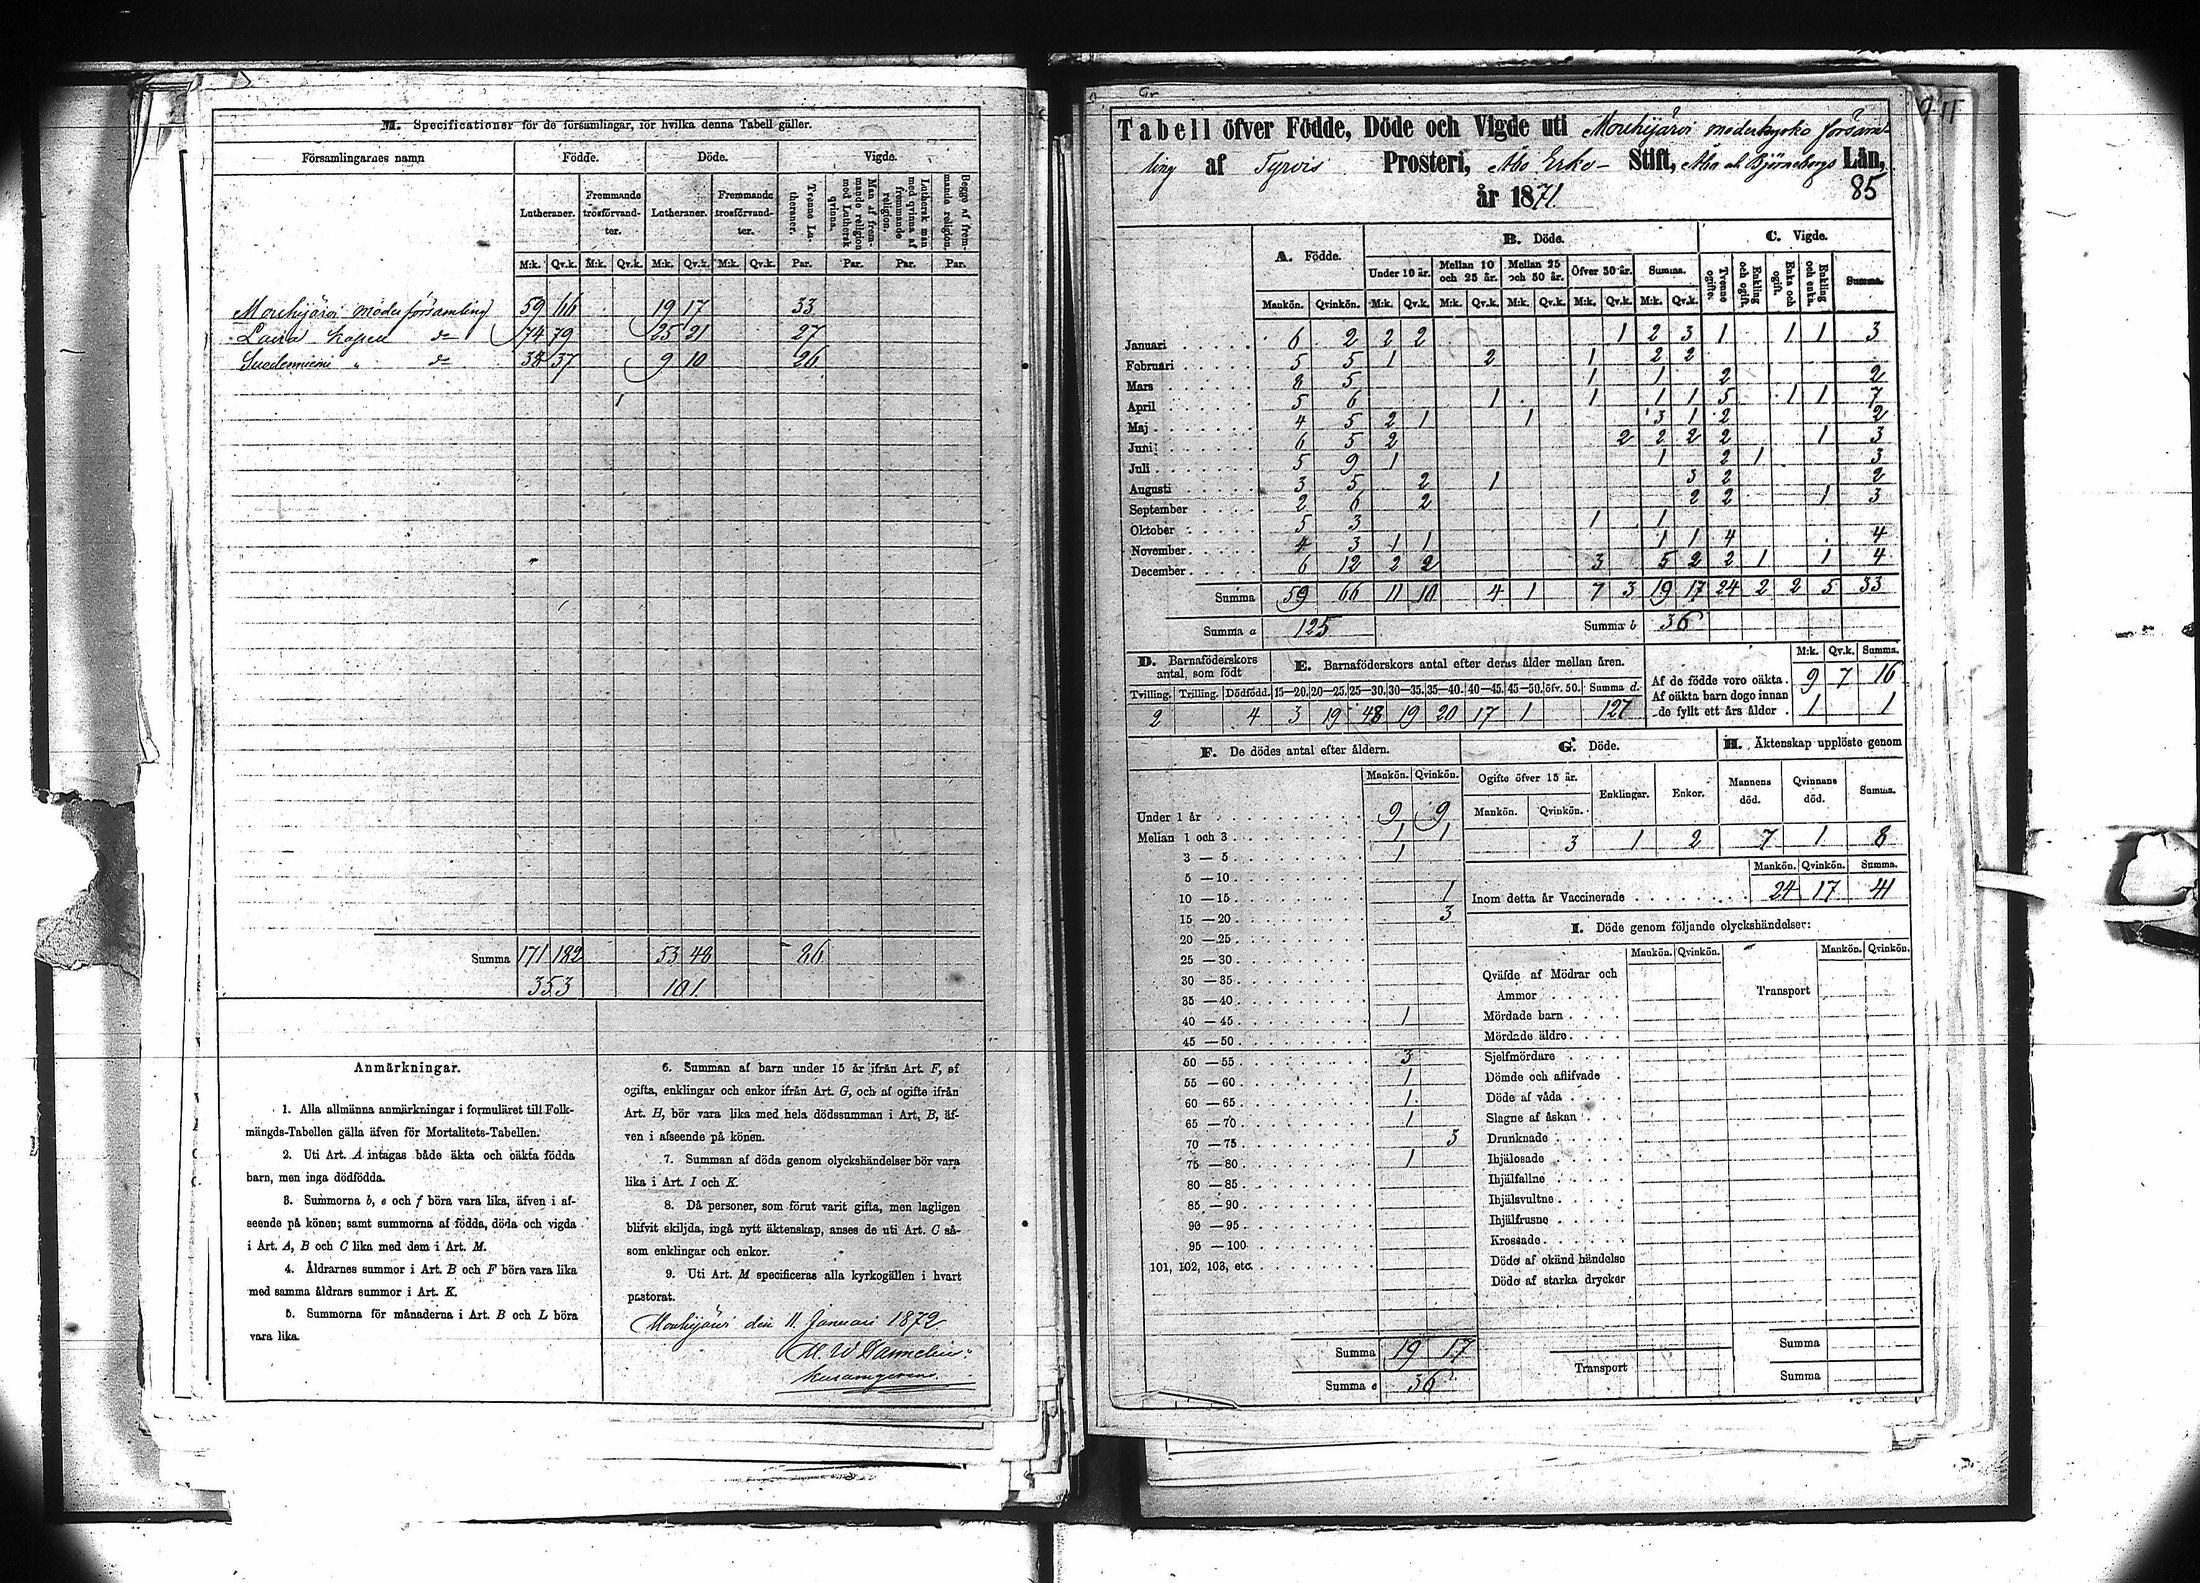 M. Specificationer för de församlingar, för hvilka denna Tabell gäller.
Församlingarnes namn Födde. Döde. Vigde.
Lutheraner. Fremmande trosförvandter. Lutheraner. Fremmande trosförvandter. Tvenne Lutheraner. Man af fremmande religion med Luthersk qvinna. Luthersk man med qvinna af fremmande religion. Begge af fremmande religion.
M:k. Qv.k. M:k. Qv.k. M:k. Qv.k. M:k. Qv.k. Par. Par. Par. Par.
Mouhijärvi moderförsamling 59 66 19 17 33
Lavia kapell d:o 74 79 25 21 27
Suodenniemi " d:o 38 37 9 10 26
Summa 171 182 53 48 86
353 101
Anmärkningar.
1. Alla allmänna anmärkningar i formuläret till Folk-
mängds-Tabellen gälla äfven för Mortalitets-Tabellen.
2. Uti Art. A intagas både äkta och oäkta födda
barn, men inga dödfödda.
3. Summorna b, e och f böra vara lika, äfven i af-
seende på könen; samt summorna af födda, döda och vigda
i Art. A, B och C lika med dem i Art. M.
4. Åldrarnes summor i Art. B och F böra vara lika
med samma åldrars summor i Art. K.
5. Summorna för månaderna i Art. B och L böra
vara lika.
6. Summan af barn under 15 år ifrån Art. F, af
ogifta, enklingar och enkor ifrån Art. G, och af ogifte ifrån
Art. H, bör vara lika med hela dödssumman i Art, B, äf-
ven i afseende på könen.
7. Summan af döda genom olyckshändelser bör vara
lika i Art. I och K.
8. Då personer, som förut varit gifta, men lagligen
blifvit skiljda, ingå nytt äktenskap, anses de uti Art. C så-
som enklingar och enkor.
9. Uti Art. M specificeras alla kyrkogällen i hvart
pastorat.
Mouhijärvi den 11 Januari 1872
911
Tabell öfver Födde, Döde och Vigde uti Mouhijärvi moderkyrko försam-
ling af Tyrvis Prosteri, Åbo Erke- Stift, Åbo och Björneborgs Län,
år 1871 85
A. Födde. B. Döde. C. Vigde.
Under 10 år. Mellan 10 och 25 år. Mellan 25 och 50 år. Öfver 50 år. Summa. Tvenne ogifte. Enkling och ogift. Enka och ogift. Enkling och enka. Summa.
Mankön. Qvinkön. M:k. Qv.k. M:k. Qv.k. M:k. Qv.k. M:k. Qv.k. M:k. Qv.k.
Januari 6 2 2 2 1 2 3 1 1 1 3
Februari 5 5 1 2 1 2 2
Mars 8 5 1 1 2 2
April 5 6 1 1 1 1 5 1 1 7
Maj 4 5 2 1 1 3 1 2 2
Juni 6 5 2 2 2 2 2 1 3
Juli 5 9 1 1 2 1 3
Augusti 3 5 2 1 3 2 2
September 2 6 2 2 2 1 3
Oktober 5 3 1 1
November 4 3 1 1 1 1 4 4
December 6 12 2 2 3 5 2 2 1 1 4
Summa 59 66 11 10 4 1 7 3 19 17 24 2 2 5 33
Summa a 125 Summa b 36
D. Barnaföderskors antal, som födt
Tvilling. Trilling. Dödfödd.
2 4
E. Barnaföderskors antal efter deras ålder mellan åren.
15—20. 20—25. 25—30. 30—35. 35—40. 40—45. 45—50. öfv. 50. Summa d.
3 19 48 19 20 17 1 127
M:k. Qv.k. Summa.
Af de födde voro oäkta. 9 7 16
Af oäkta barn dogo innan
de fyllt ett års ålder. 1 1
F. De dödes antal efter åldern.
Mankön. Qvinkön.
Under 1 år 9 9
Mellan 1 och 3 1 1
3 — 5 1
5 — 10
10 — 15 1
15 — 20 3
20 — 25
25 — 30
30 — 35
35 — 40
40 — 45 1
45 — 50
50 — 55 3
55 — 60 1
60 — 65 1
65 — 70 1
70 — 75 3
75 — 80 1
80 — 85
85 — 90
90 — 95
95 — 100
101, 102, 103, etc.
Summa 19 17
Summa e 36
G. Döde.
Ogifte öfver 15 år. Enklingar. Enkor.
Mankön. Qvinkön.
3 1 2
H. Äktenskap upplöste genom
Mannens död. Qvinnans död. Summa.
7 1 8
Mankön. Qvinkön. Summa.
Inom detta år Vaccinerade 24 17 41
I. Döde genom följande olyckshändelser:
Mankön. Qvinkön. Mankön. Qvinkön.
Qväfde af Mödrar och
Ammor
Transport
Mördade barn
Mördade äldre
Sjelfmördare
Dömde och aflifvade
Döde af våda
Slagne af åskan
Drunknade
Ihjälosade
Ihjälfallne
Ihjälsvultne
Ihjälfrusne
Krossade
Döde af okänd händelse
Döde af starka drycker
Transport
Summa
Summa